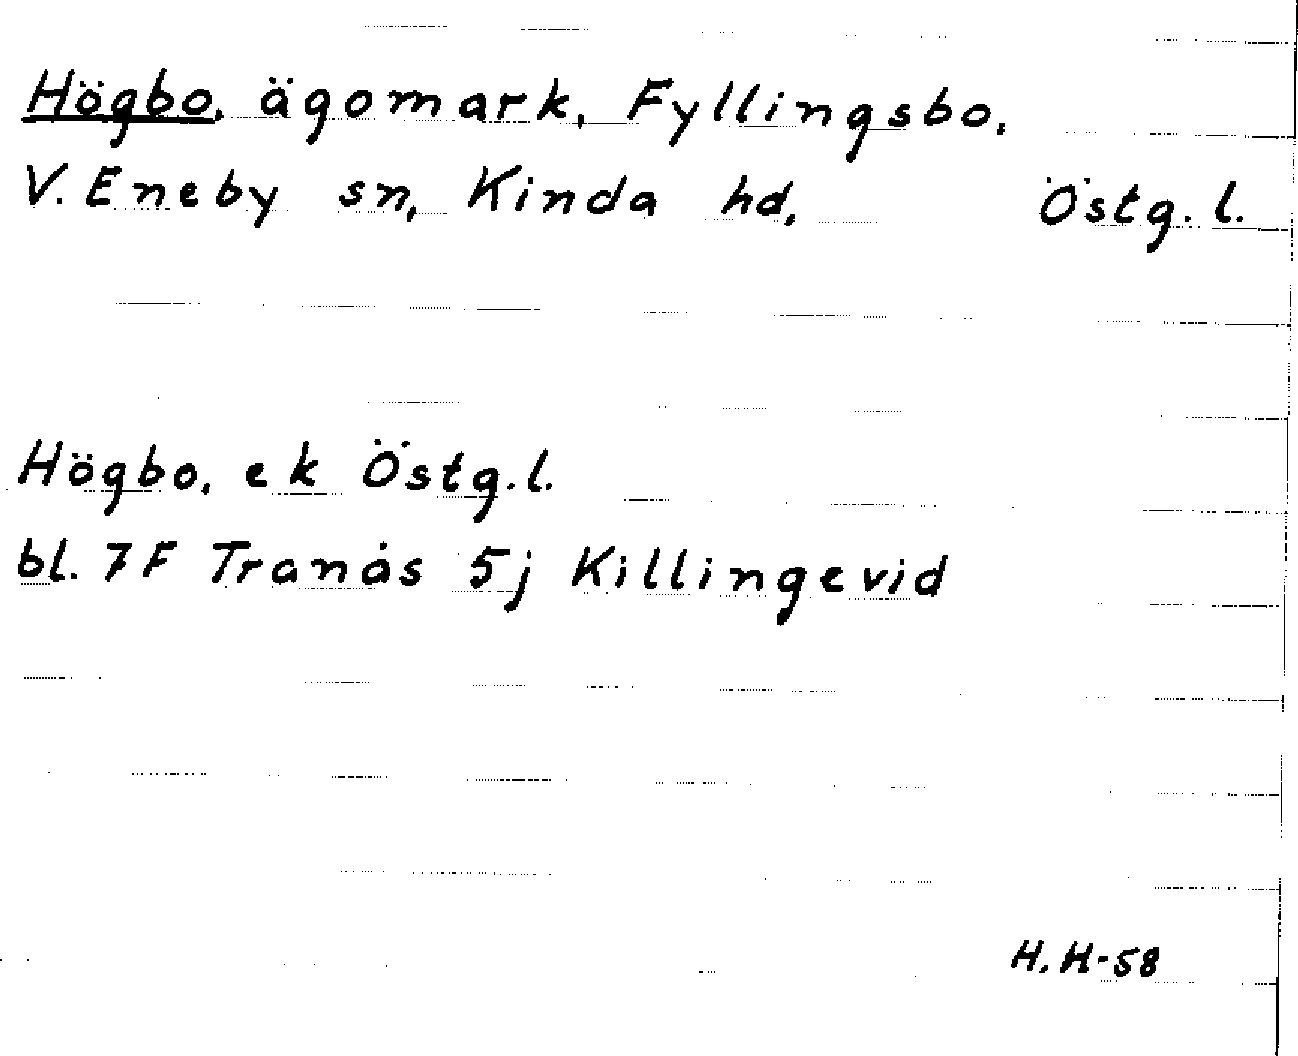 Högbo, ägomark, Fyllingsbo,
V. Eneby sn, Kinda hd, Östg. l.
Högbo, ek Östg. l.
bl. 7F Tranås 5j Killingevid
H. H-58